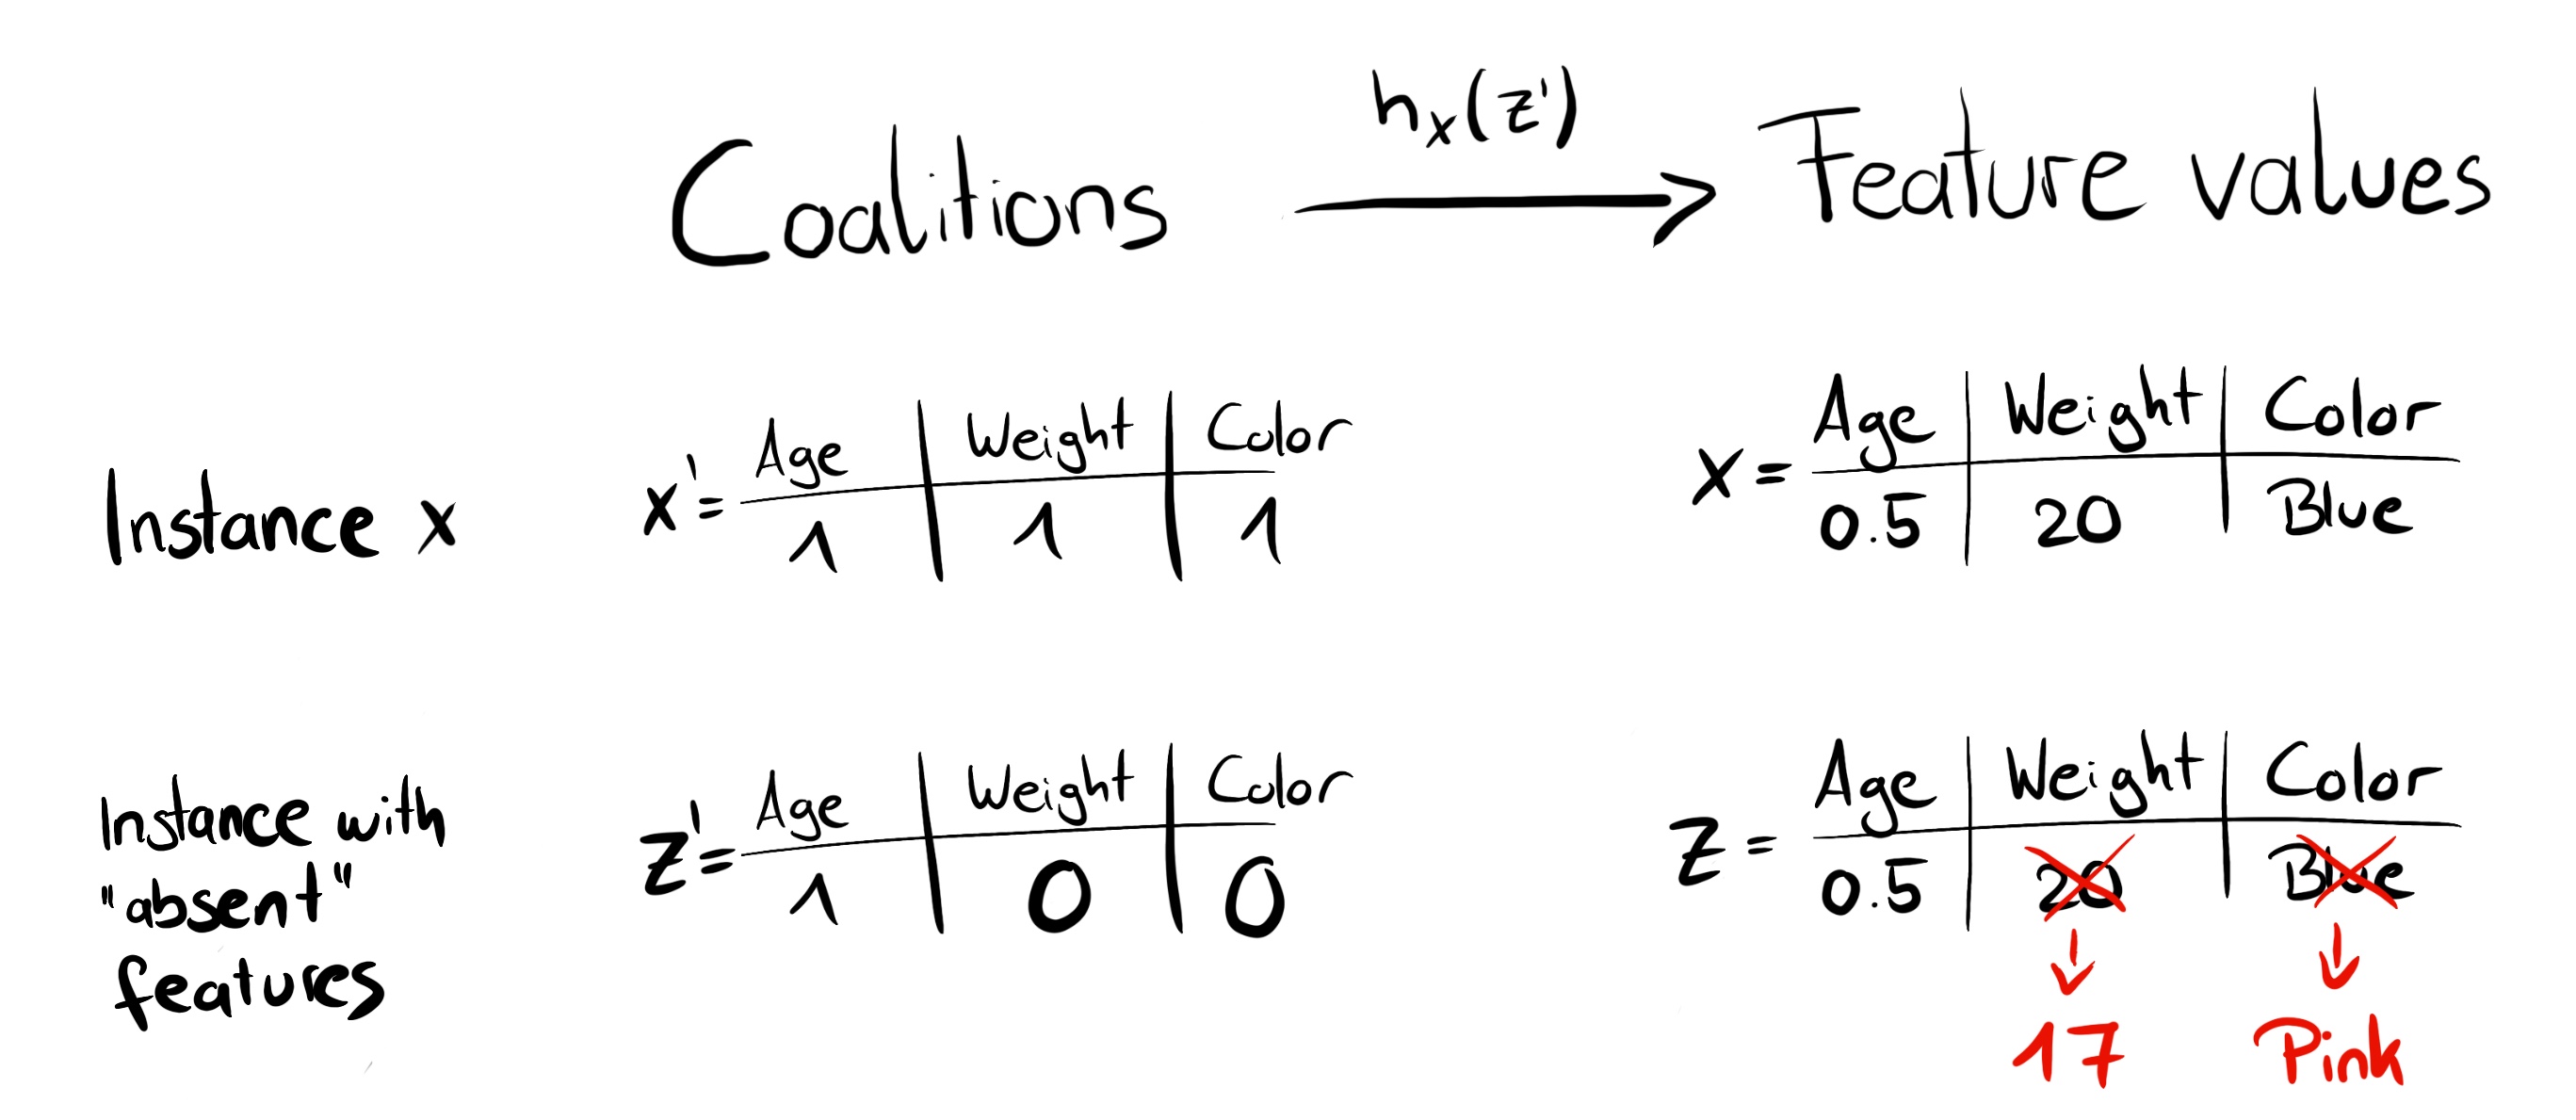 Coalitions hₓ(z') Feature values
Instance x
x'= Age Weight Color
1 1 1
x= Age Weight Color
0.5 20 Blue
Instance with
"absent"
features
z'= Age Weight Color
1 0 0
z= Age Weight Color
0.5 20 Blue
17 Pink